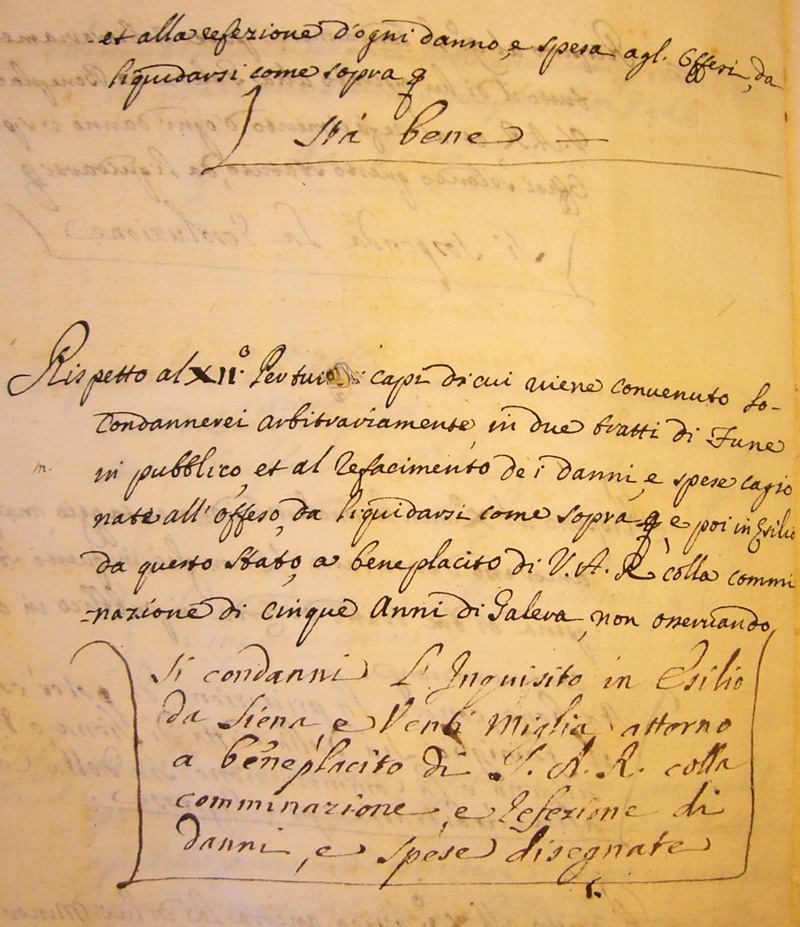 et alla refezione d'ogni danno, e spesa agl. Offesi, da
liquidarsi come sopra
Stà bene
Rispetto al XII.º Per tutti capi di cui viene convenuto lo
Condannerei arbitrariamente, in due tratti di Fune
in pubblico, et al refacimento de i danni, e spese cagio
nate all' offeso, da liquidarsi come sopra e poi in Esilio
da questo Stato, a beneplacito di V. A. R. colla commi
-nazione di cinque Anni di Galera, non osservando
Si condanni L'Inquisito in Esilio
da Siena, e Venti Miglia attorno
a beneplacito di S. A. R. colla
comminazione, e refezione di
danni, e spese disegnate